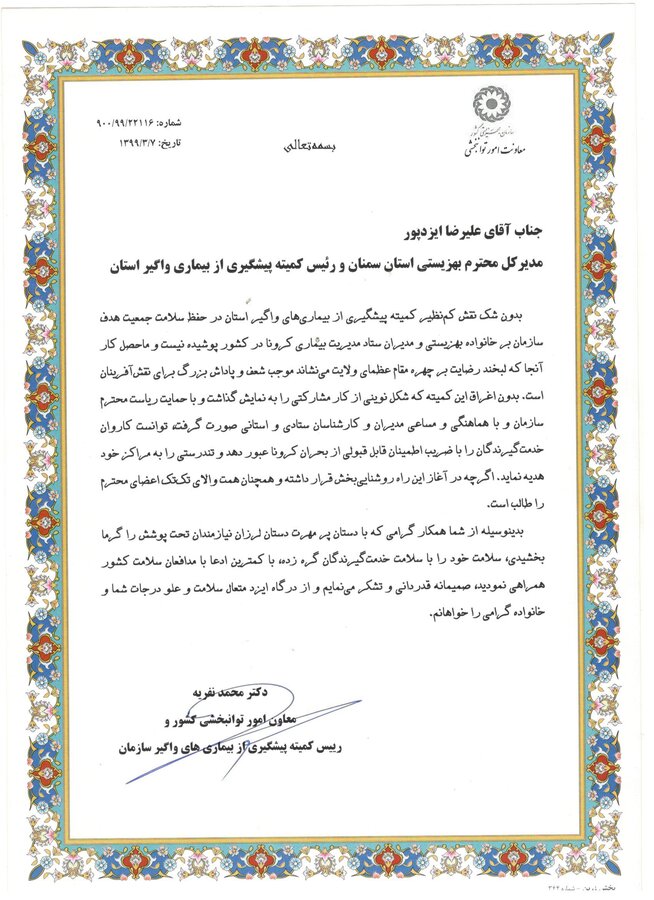 سازمان بهزیستی کشور
معاونت امور توانبخشی
شماره: ۹۰۰/۹۹/۲۲۱۱۶
تاریخ: ۱۳۹۹/۳/۷
بسمه‌تعالی
جناب آقای علیرضا ایزدپور
مدیرکل محترم بهزیستی استان سمنان و رئیس کمیته پیشگیری از بیماری واگیر استان
بدون شک نقش کم‌نظیر کمیته پیشگیری از بیماری‌های واگیر استان در حفظ سلامت جمعیت هدف
سازمان بر خانواده بهزیستی و مدیران ستاد مدیریت بیماری کرونا در کشور پوشیده نیست و ماحصل کار
آنجا که لبخند رضایت بر چهره مقام عظمای ولایت می‌نشاند موجب شعف و پاداش بزرگ برای نقش‌آفرینان
است. بدون اغراق این کمیته که شکل نوینی از کار مشارکتی را به نمایش گذاشت و با حمایت ریاست محترم
سازمان و با هماهنگی و مساعی مدیران و کارشناسان ستادی و استانی صورت گرفت، توانست کاروان
خدمت‌گیرندگان را با ضریب اطمینان قابل قبولی از بحران کرونا عبور دهد و تندرستی را به مراکز خود
هدیه نماید. اگرچه در آغاز این راه روشنایی‌بخش قرار داشته و همچنان همت والای تک‌تک اعضای محترم
را طالب است.
بدینوسیله از شما همکار گرامی که با دستان پر مهرت دستان لرزان نیازمندان تحت پوشش را گرما
بخشیدی، سلامت خود را با سلامت خدمت‌گیرندگان گره زده، با کمترین ادعا با مدافعان سلامت کشور
همراهی نمودید، صمیمانه قدردانی و تشکر می‌نمایم و از درگاه ایزد متعال سلامت و علو درجات شما و
خانواده گرامی را خواهانم.
دکتر محمد نفریه
معاون امور توانبخشی کشور و
رییس کمیته پیشگیری از بیماری های واگیر سازمان